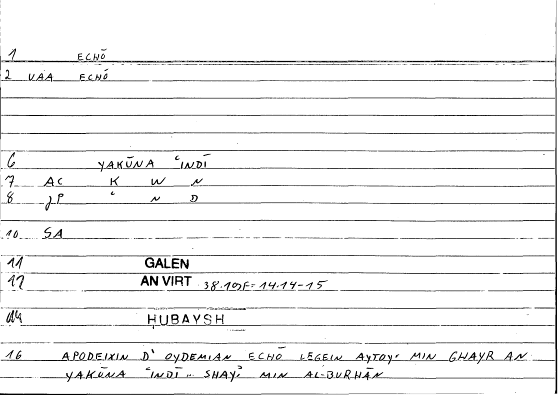 1 ECHŌ
2 VAA ECHŌ
6 YAKŪNA ʿINDĪ
7 AC K W N
8 JP ʿ N D
10 SA
11 GALEN
12 AN VIRT 38.10SF=14.14-15
14 ḤUBAYSH
16 APODEIXIN D' OYDEMIAN ECHŌ LEGEIN AYTOY· MIN GHAYR AN
YAKŪNA ʿINDĪ .. SHAYʾ MIN AL-BURHĀN